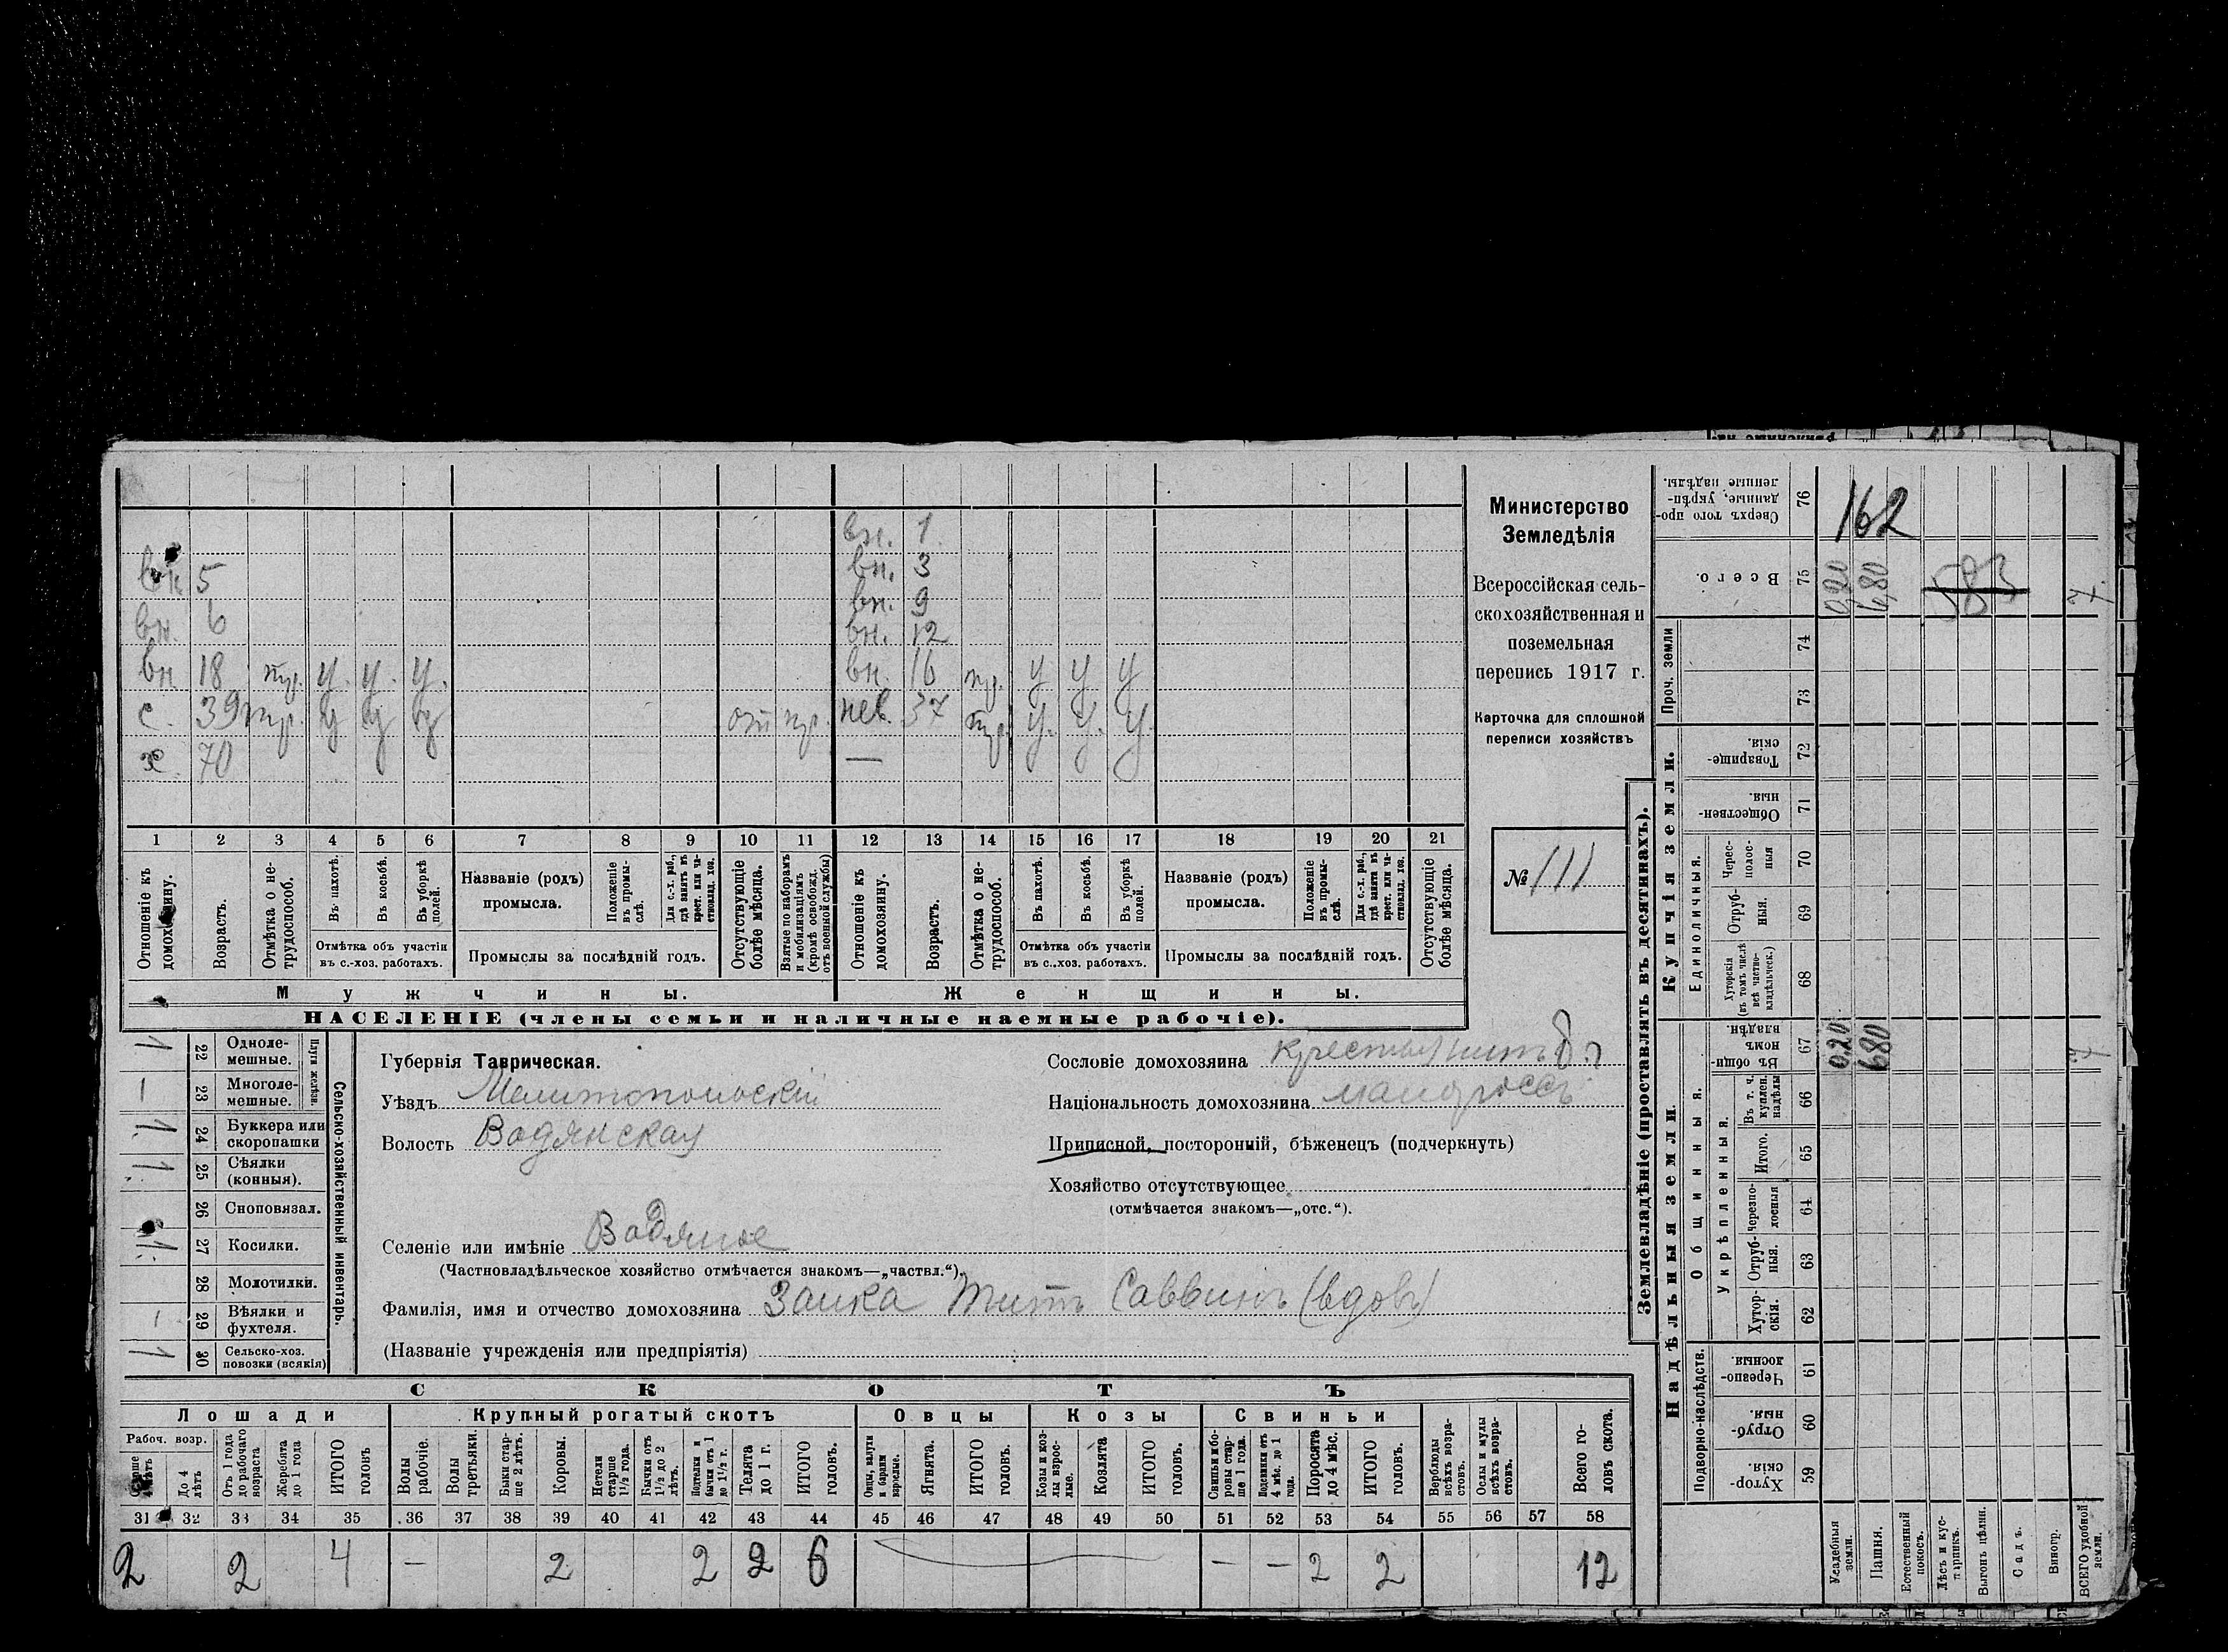 вн. 1
вн. 5 вн. 3
вн. 6 вн. 9
вн. 12
вн. 18 тр. у. у. у. вн. 16 тр. у у у
с. 39 тр. у у у от тр. нев. 37 тр. у. у. у.
х. 70 —
1 2 3 4 5 6 7 8 9 10 11 12 13 14 15 16 17 18 19 20 21
Отношеніе къ домохозяину.
Возрастъ.
Отмѣтка о нетрудоспособ.
Въ пахотѣ.
Въ косьбѣ.
Въ уборкѣ полей.
Отмѣтка объ участіи въ с.-хоз. работахъ.
Названіе (родъ) промысла.
Положеніе въ промыслѣ.
Для с.-х. раб., гдѣ занятъ въ крест. или частновлад. хоз.
Промыслы за послѣдній годъ.
Отсутствующіе болѣе мѣсяца.
Взятые по наборамъ и мобилизаціямъ (кромѣ освобожд. отъ военной службы)
Отношеніе къ домохозяину.
Возрастъ.
Отмѣтка о нетрудоспособ.
Въ пахотѣ.
Въ косьбѣ.
Въ уборкѣ полей.
Отмѣтка объ участіи въ с.-хоз. работахъ.
Названіе (родъ) промысла.
Положеніе въ промыслѣ.
Для с.-х. раб., гдѣ занята въ крест. или частновлад. хоз.
Промыслы за послѣдній годъ.
Отсутствующіе болѣе мѣсяца.
Мужчины. Женщины.
НАСЕЛЕНІЕ (члены семьи и наличные наемные рабочіе).
Министерство
Земледѣлія
Всероссійская сель-
скохозяйственная и
поземельная
перепись 1917 г.
Карточка для сплошной
переписи хозяйствъ
№ 111
1 22 Однолемешные.
— 23 Многолемешные.
Плуги желѣзн.
1. 24 Буккера или скоропашки
1. 25 Сѣялки (конныя).
26 Сноповязал.
1. 27 Косилки.
28 Молотилки.
— 29 Вѣялки и фухтеля.
1 30 Сельско-хоз. повозки (всякія)
Сельско-хозяйственный инвентарь.
Губернія Таврическая.
Уѣздъ Мелитопольскій
Волость Водянская
Сословіе домохозяина крестьянинъ
Національность домохозяина малоросъ
Приписной, посторонній, бѣженецъ (подчеркнуть)
Хозяйство отсутствующее
(отмѣчается знакомъ—„отс.“).
Селеніе или имѣніе Водяное
(Частновладѣльческое хозяйство отмѣчается знакомъ—„частвл.“).
Фамилія, имя и отчество домохозяина Заика Титъ Саввинъ (вдовъ)
(Названіе учрежденія или предпріятія)
СКОТЪ
Лошади Крупный рогатый скотъ Овцы Козы Свиньи
Рабоч. возр.
Старше 4 лѣтъ
До 4 лѣтъ
Отъ 1 года до рабочаго возраста
Жеребята до 1 года
ИТОГО головъ
Волы рабочіе.
Волы третьяки.
Быки старше 2 лѣтъ.
Коровы.
Нетели старше 1½ года.
Бычки отъ 1½ до 2 лѣтъ.
Подтелки и бычки отъ 1 до 1½ г.
Телята до 1 г.
ИТОГО головъ.
Овцы, валухи и бараны взрослые.
Ягнята.
ИТОГО головъ.
Козы и козлы взрослые.
Козлята
ИТОГО головъ.
Свиньи и боровы старше 1 года.
Подсвинки отъ 4 мѣс. до 1 года.
Поросята до 4 мѣс.
ИТОГО головъ.
Верблюды всѣхъ возрастовъ.
Ослы и мулы всѣхъ возрастовъ.
Всего головъ скота.
31 32 33 34 35 36 37 38 39 40 41 42 43 44 45 46 47 48 49 50 51 52 53 54 55 56 57 58
2 2 4 — 2 2 2 6 — — 2 2 12
Землевладѣніе (проставлять въ десятинахъ).
Сверхъ того проданные, укрѣпленные надѣлы. 76 162
Всего. 75 0,20 6,80 583 7
Проч. земли
74
73
Купчія земли.
Товарищескія. 72
Общественныя. 71
Единоличныя.
Чересполосныя 70
Отрубныя. 69
Хуторскія (въ томъ числѣ всѣ частновладѣльческ.) 68
Надѣльныя земли.
Общинныя.
Въ общинномъ владѣн. 67 0,20 6,80 7
Укрѣпленныя.
Въ т. ч. куплен. надѣлы 66
Итого. 65
Черезполосныя 64
Отрубныя. 63
Хуторскія. 62
Подворно-наслѣдств.
Черезполосныя. 61
Отрубныя. 60
Хуторскія. 59
Усадебныя земли.
Пашня.
Естественный покосъ.
Лѣсъ и кустарникъ.
Выгонъ цѣлин.
Садъ.
Виногр.
ВСЕГО удобной земли.